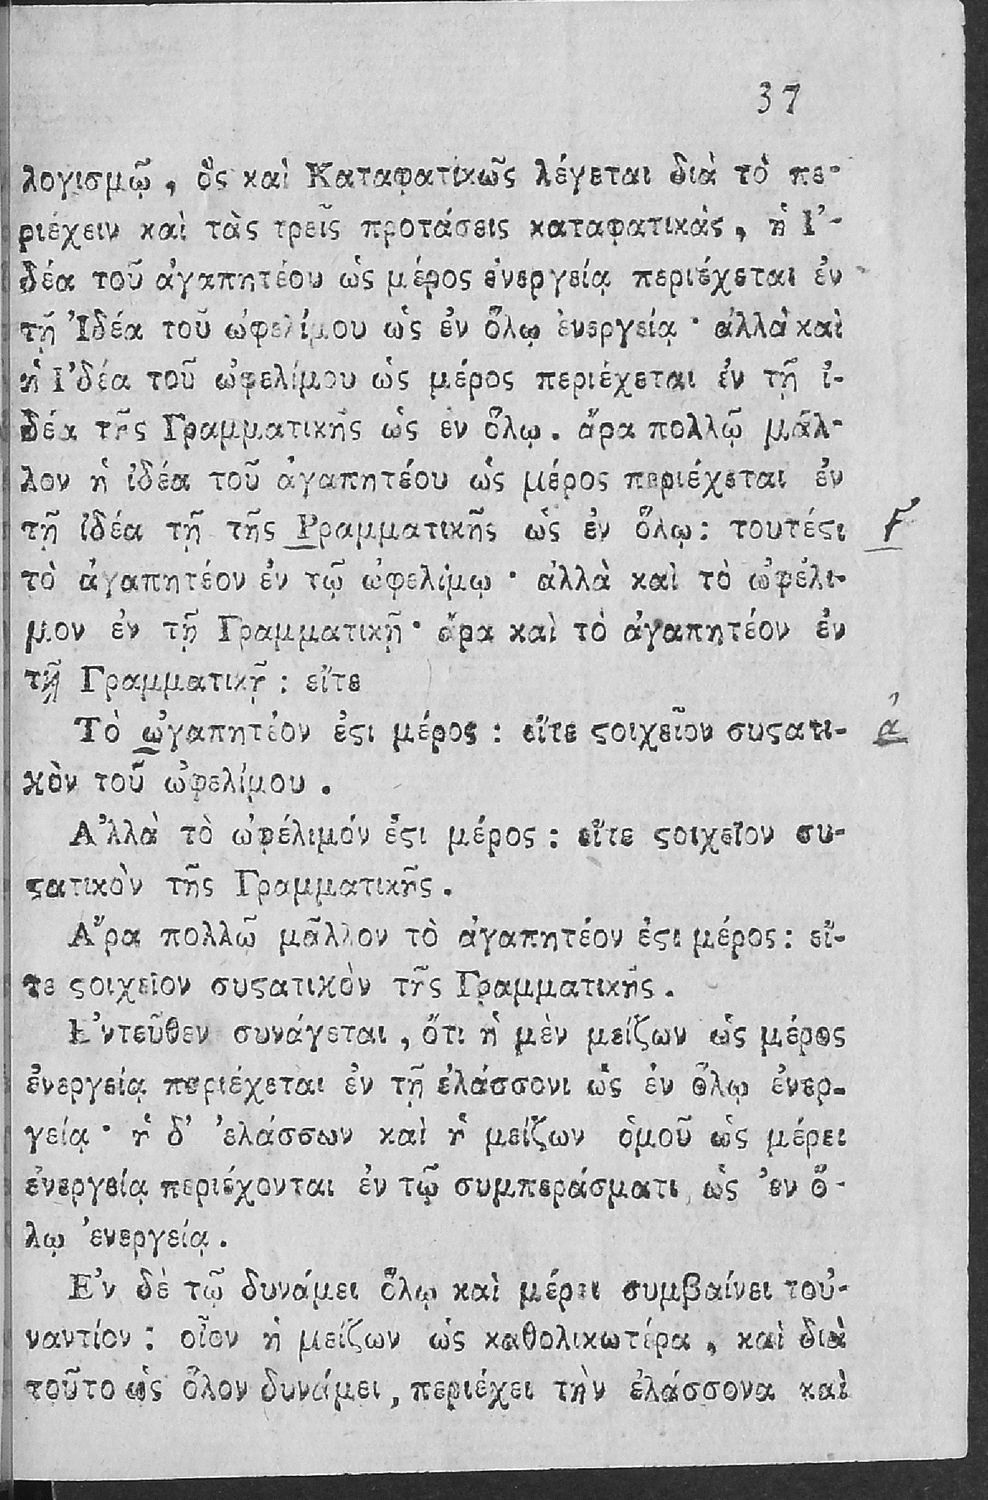 37
λογισμῷ, ὃς καὶ Καταφατικῶς λέγεται διὰ τὸ πε-
ριέχειν καὶ τὰς τρεῖς προτάσεις καταφατικάς, ἡ Ι᾿-
δέα τοῦ ἀγαπητέου ὡς μέρος ἐνεργείᾳ περιέχεται ἐν
τῇ Ἰδέα τοῦ ὠφελίμου ὡς ἐν ὅλῳ ἐνεργείᾳ · ἀλλὰ καὶ
ἡ Ι᾿δέα τοῦ ὠφελίμου ὡς μέρος περιέχεται ἐν τῇ ἰ-
δέα τῆς Γραμματικῆς ὡς ἐν ὅλῳ. ἄρα πολλῷ μᾶλ-
λον ἡ ἰδέα τοῦ ἀγαπητέου ὡς μέρος περιέχεται ἐν
τῇ ἰδέα τῇ τῆς Ρραμματικῆς ὡς ἐν ὅλῳ: τουτέϛι Γ
τὸ ἀγαπητέον ἐν τῷ ὠφελίμῳ · ἀλλὰ καὶ τὸ ὠφέλι-
μον ἐν τῇ Γραμματικῇ · ἄρα καὶ τὸ ἀγαπητέον ἐν
τῇ Γραμματικῇ : εἴτε
Τὸ ὠγαπητέον ἐϛι μέρος : εἴτε ϛοιχεῖον συϛατι- ἀ
κὸν τοῦ ὠφελίμου.
Α᾿λλὰ τὸ ὠφέλιμόν ἐϛι μέρος : εἴτε ϛοιχεῖον συ-
ϛατικὸν τῆς Γραμματικῆς.
Α῎ρα πολλῷ μᾶλλον τὸ ἀγαπητέον ἐϛι μέρος : εἴ-
τε ϛοιχεῖον συϛατικὸν τῆς Γραμματικῆς.
Ε᾿ντεῦθεν συνάγεται, ὅτι ἡ μὲν μείζων ὡς μέρος
ἐνεργείᾳ περιέχεται ἐν τῇ ἐλάσσονι ὡς ἐν ὅλῳ ἐνερ-
γείᾳ · ἡ δ' ᾿ελάσσων καὶ ἡ μείζων ὁμοῦ ὡς μέρει
ἐνεργείᾳ περιέχονται ἐν τῷ συμπεράσματι ὡς ᾿εν ὅ-
λῳ ᾿ενεργείᾳ.
Ε᾿ν δὲ τῷ δυνάμει ὅλῳ καὶ μέρει συμβαίνει τοὐ-
ναντίον : οἷον ἡ μείζων ὡς καθολικωτέρα, καὶ διὰ
τοῦτο ὡς ὅλον δυνάμει, περιέχει τὴν ἐλάσσονα καὶ